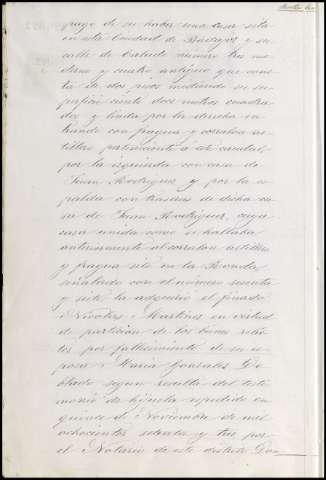 pago de su haber una casa sita
en esta Ciudad de Badajoz y su
calle de Calatrava número tres mo
derno y cuatro antiguo que cons
ta de dos pisos midiendo su su
perficie ciento doce metros cuadra
dos y linda por la derecha en
trando con fragua y corralon ar
tillero perteneciente á este caudal,
por la izquierda con casa de
Juan Rodriguez y por la es
palda con traseras de dicha ca
sa de Juan Rodriguez, cuya
casa unida como se hallaba
anteriormente al corralon artillero
y fragua sito en la Ronda,
señalado con el número sesenta
y siete la adquirió el finado
Nicolás Martinez en virtud
de particion de los bienes relic
tos por fallecimiento de su es
posa Maria Gonzalez Do
blado segun resulta del testi
monio de hijuela expedido en
quince de Noviembre de mil
ochocientos setenta y tres por
el Notario de este distrito Don